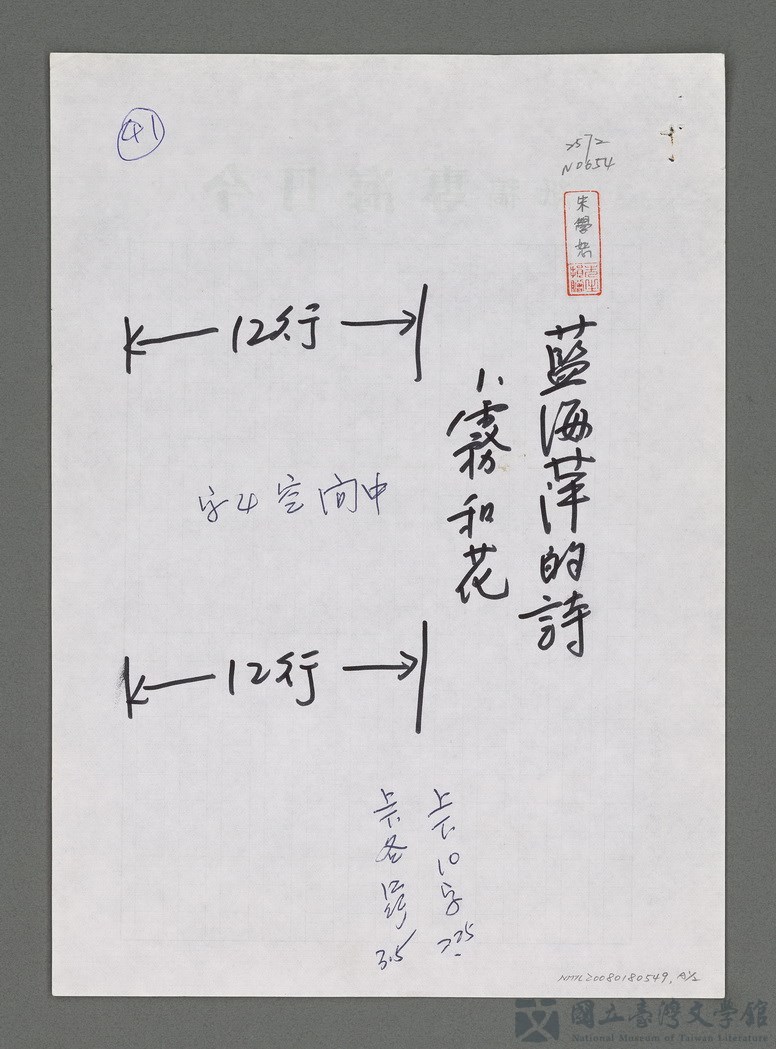 41
2572
N0654
朱學恕
先生
捐贈
藍海萍的詩
1、霧和花
12行
中間空4字
12行
上下10字
上下各12行
3.5
NMTL20080180549,
國立臺灣文學館
National Museum of Taiwan Literature